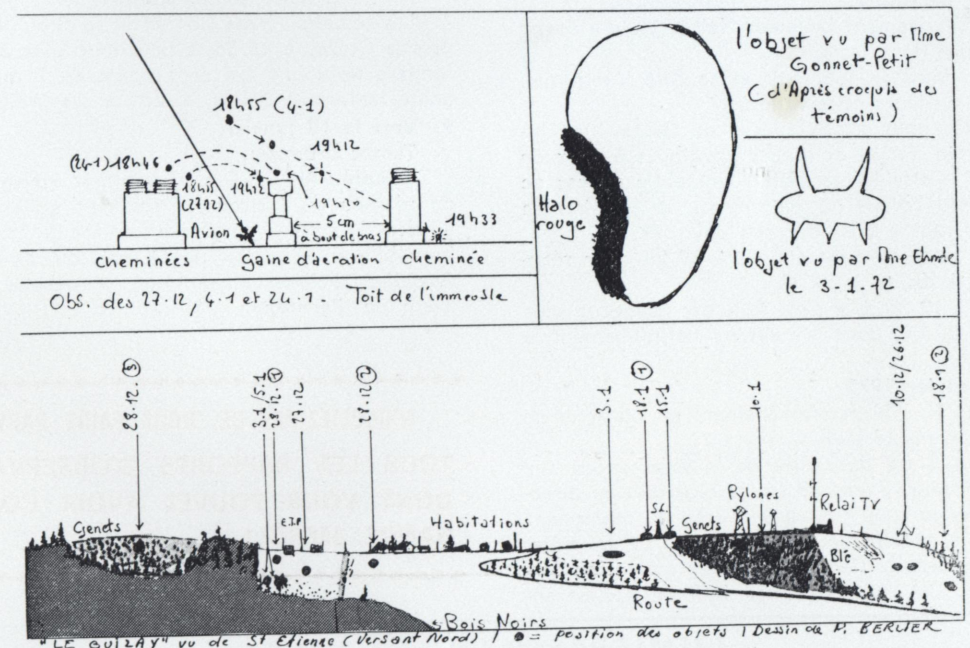 18h55 (4.1)
19h12
(24.1) 18h46
18h15
(27.12)
19h12
19h20
5cm
à bout de bras
19h33
Avion
cheminées
gaine d'aeration
cheminée
Obs. des 27.12, 4.1 et 24.1. Toit de l'immeuble
l'objet vu par Mme
Gonnet-Petit
(d'Après croquis des
témoins)
Halo
rouge
l'objet vu par Mme
le 3-1-72
28.12
3.1/5.1
27.12
3.1
18.1
15.1
10.1
10.12/26.12
18.1
Genets
Habitations
Genets
Pylones
Relai TV
Blé
Route
Bois Noirs
"LE GUIZAY" vu de St Etienne (Versant Nord) / = position des objets / Dessin de P. BERLIER